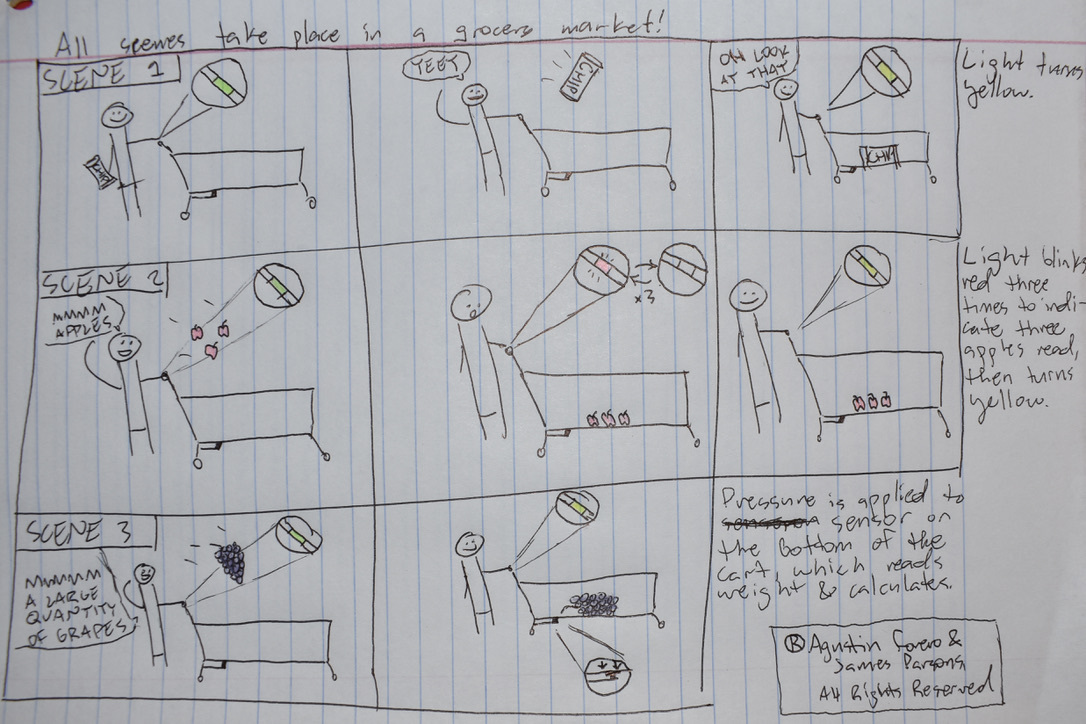 All scenes take place in a grocers market!
SCENE 1
CHIP
YEET
CHIP
OH LOOK
AT THAT
CHIP
Light turns
yellow.
SCENE 2
MMMM
APPLES.
x3
Light blinks
red three
times to indi-
cate three
apples read,
then turns
yellow.
SCENE 3
MMMMM
A LARGE
QUANTITY
OF GRAPES
Pressure is applied to
sensor on
the bottom of the
cart, which reads
weight & calculates.
® Agustin Forero &
James Parsons
All Rights Reserved